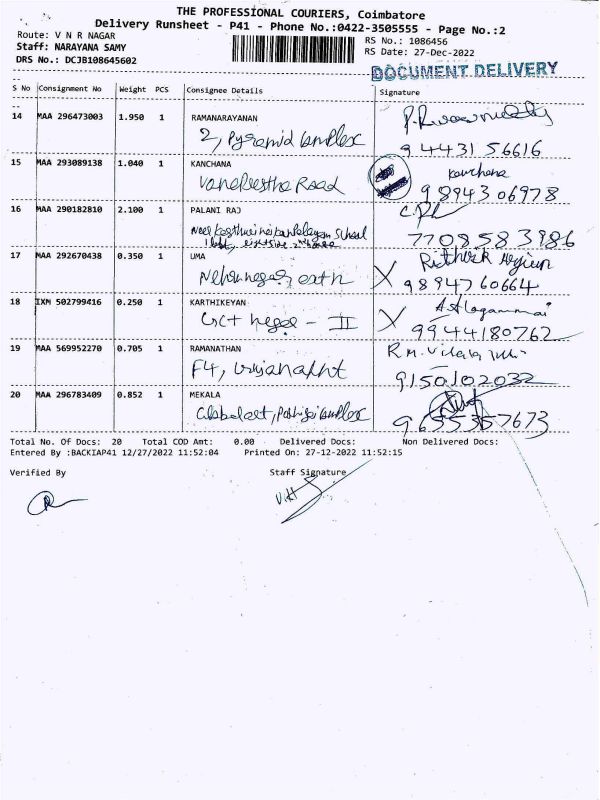 THE PROFESSIONAL COURIERS, Coimbatore
Delivery Runsheet - P41 - Phone No.:0422-3505555 - Page No.:2
Route: V N R NAGAR
RS No.: 1086456
Staff: NARAYANA SAMY
RS Date: 27-Dec-2022
DRS No.: DCJB108645602
DOCUMENT DELIVERY
S No Consignment No Weight PCS Consignee Details Signature
14 MAA 296473003 1.950 1 RAMANARAYANAN
2, Pyramid Complex
94431 56616
15 MAA 293089138 1.040 1 KANCHANA
kanchana
Road
98943 06978
16 MAA 290182810 2.100 1 PALANI RAJ
School
7708583986
17 MAA 292670438 0.350 1 UMA
Nehru nagar, east
9894760664
18 IXM 502799416 0.250 1 KARTHIKEYAN
- II
9944180762
19 MAA 569952270 0.705 1 RAMANATHAN
F4,
9150102032
20 MAA 296783409 0.852 1 MEKALA
Complex
9655357673
Total No. Of Docs: 20 Total COD Amt: 0.00 Delivered Docs: Non Delivered Docs:
Entered By :BACKIAP41 12/27/2022 11:52:04 Printed On: 27-12-2022 11:52:15
Verified By Staff Signature